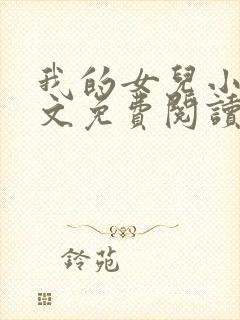 我的女兒小
文免費閱讀
鈴苑